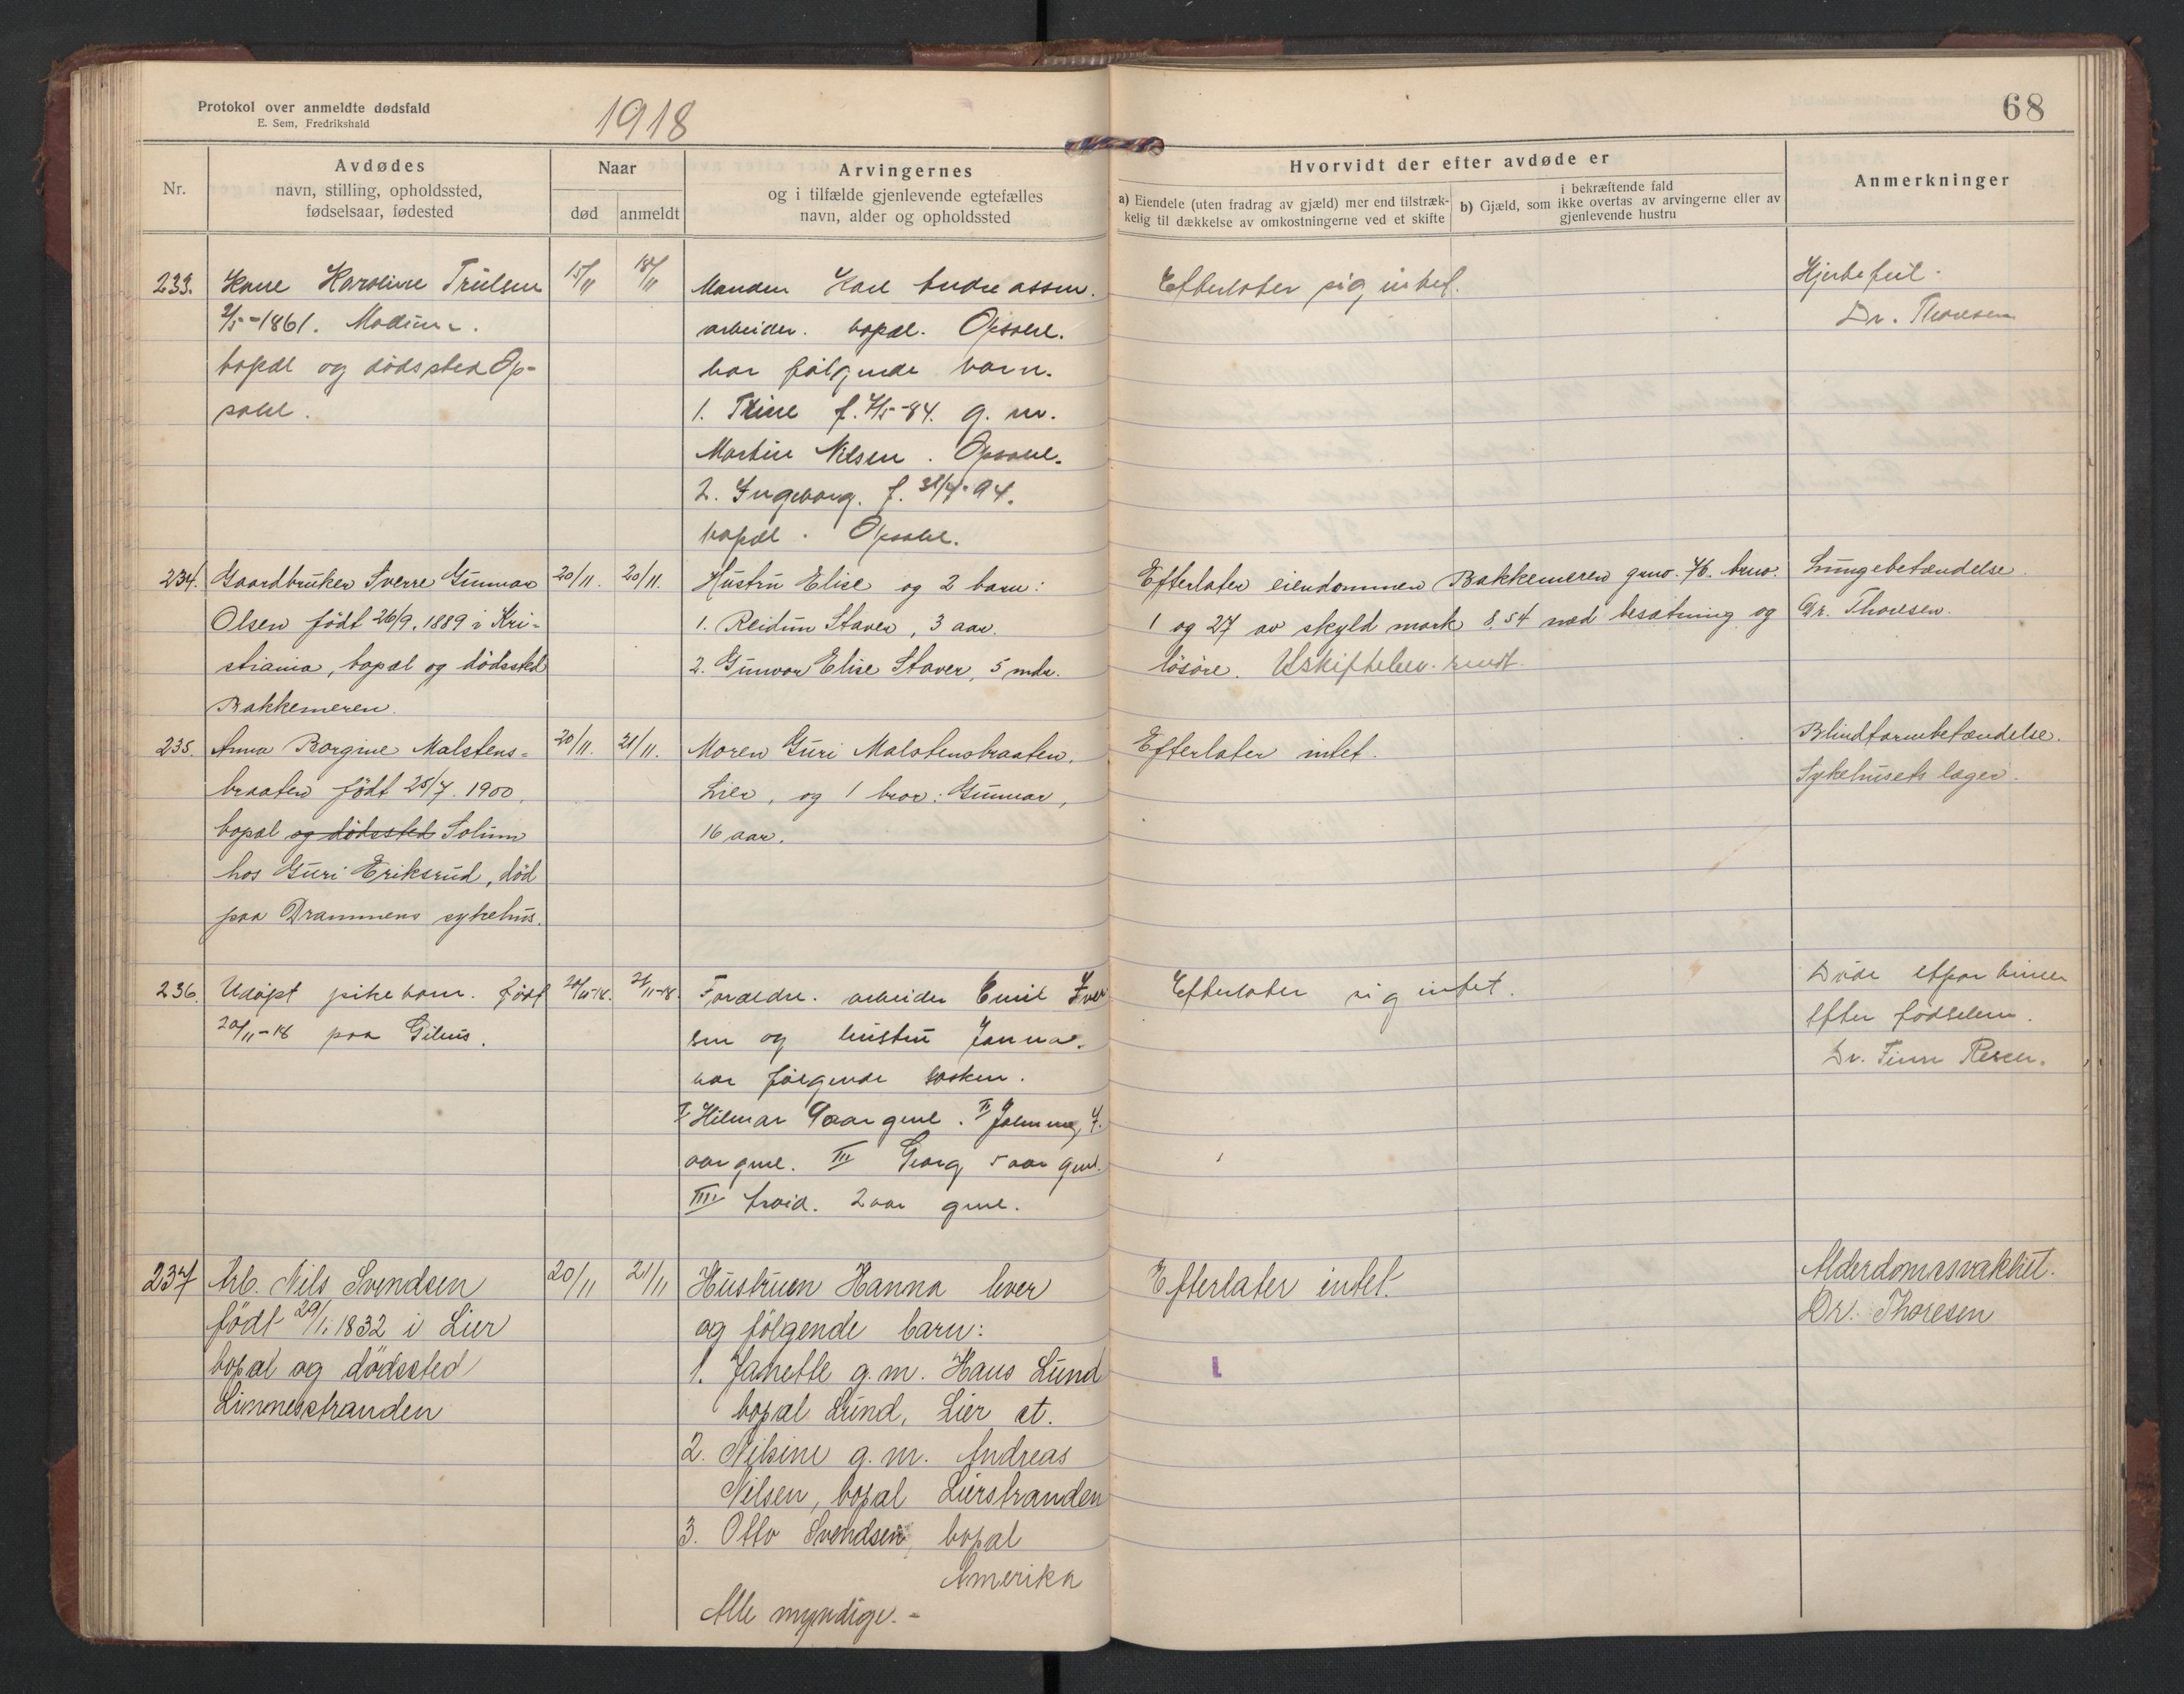 Protokol over anmeldte dødsfald
E. Sem, Fredrikshald
1918
68
Nr.
Avdødes
navn, stilling, opholdssted,
fødselsaar, fødested
Naar
død
anmeldt
Arvingernes
og i tilfælde gjenlevende egtefælles
navn, alder og opholdssted
Hvorvidt der efter avdøde er
a) Eiendele (uten fradrag av gjæld) mer end tilstræk-
kelig til dækkelse av omkostningerne ved et skifte
i bekræftende fald
b) Gjæld, som ikke overtas av arvingerne eller av
gjenlevende hustru
Anmerkninger
233. Karoline Trulsen
2/5-1861. Modum.
bopæl og dødssted Op-
sahl.
15/11
18/11
Manden Karl Andreassen.
arbeider. bopæl. Opsahl.
har følgende barn.
1. Trine f. 4/5-84. g. m.
Martin Nilsen. Opsahl.
2. Ingeborg. f. /4-94.
bopæl. Opsahl.
Efterlater sig intet.
Hjertefeil.
Dr. Thoresen
234. Gaardbruker Sverre Gunnar
Olsen født 26/9. 1889 i Kri-
stiania, bopæl og dødssted
Bakkemeren.
20/11.
20/11.
Hustru Elise og 2 barn:
1. Reidun Staver, 3 aar.
2. Gunvor Elise Staver, 5 mdr.
Efterlater eiendommen Bakkemeren gno. 76. bno.
1 og 27 av skyld mark 8.54 med besætning og
løsøre. Uskiftebev. sendt.
Lungebetændelse.
Dr. Thoresen.
235. Anna Borgine Malstens-
braaten født 25/7. 1900,
bopæl og dødssted Solum
hos Guri Eriksrud, død
paa Drammens sykehus.
20/11.
21/11.
Moren Guri Malstensbraaten,
Lier, og 1 bror: Gunnar,
16 aar.
Efterlater intet.
Blindtarmbetændelse.
Sykehusets læger.
236. Udøpt pikebarn. født
20/11-18 paa Gilhus.
20/11-18.
21/11-18.
Forældre. arbeider Emil Iver
sen og hustru Janna.
har følgende søsken.
I Hilmar 9 aar gml. II 7.
aar gml. III Georg 5 aar gml.
IIII 2 aar gml.
Efterlater sig intet.
Døde
efter fødselen.
Dr. Finn
237 Arb. Nils Svendsen
født 29/1. 1832 i Lier
bopæl og dødssted
Linnesstranden
20/11
21/11
Hustruen Hanna lever
og følgende barn:
1. Janette g. m. Hans Lund
bopæl Lund, Lier st.
2. Nilsine g. m. Andreas
Nilsen, bopæl Lierstranden
3. Otto Svendsen, bopæl
Amerika
Alle myndige. -
Efterlater intet.
Alderdomssvakhet.
Dr. Thoresen